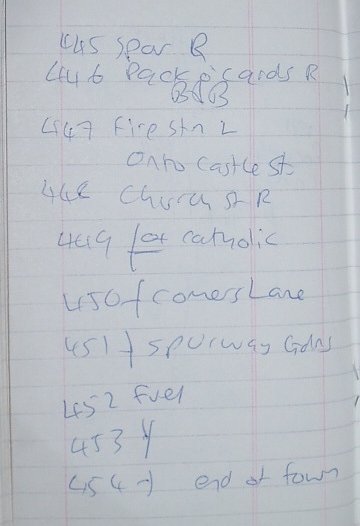 445 Spar R
446 Pack o' cards R
B&B
447 Fire Stn L
Onto Castle St
448 Church St R
449 catholic
450 Comers Lane
451 Spurway Gdns
452 Fuel
453 Y
454 end of town